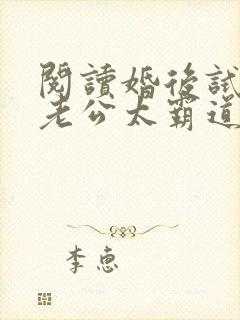 閱讀婚後試
老公太霸道
李恵